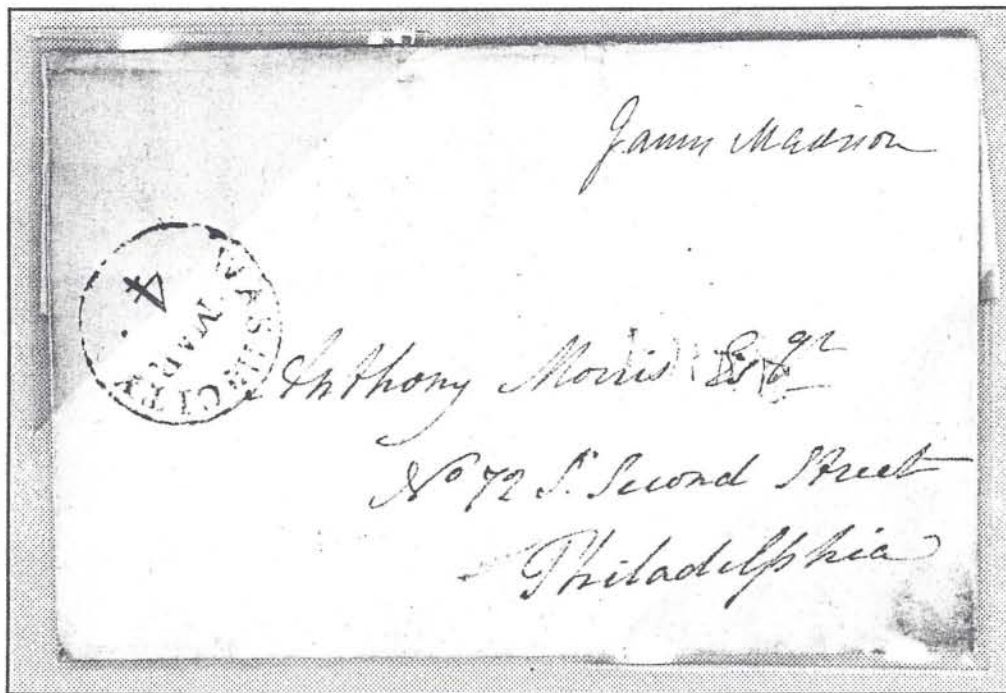 James Madison
WASH. CITY
MAR
4
Anthony Morris Esqr
No 72 S. Second Street
Philadelphia